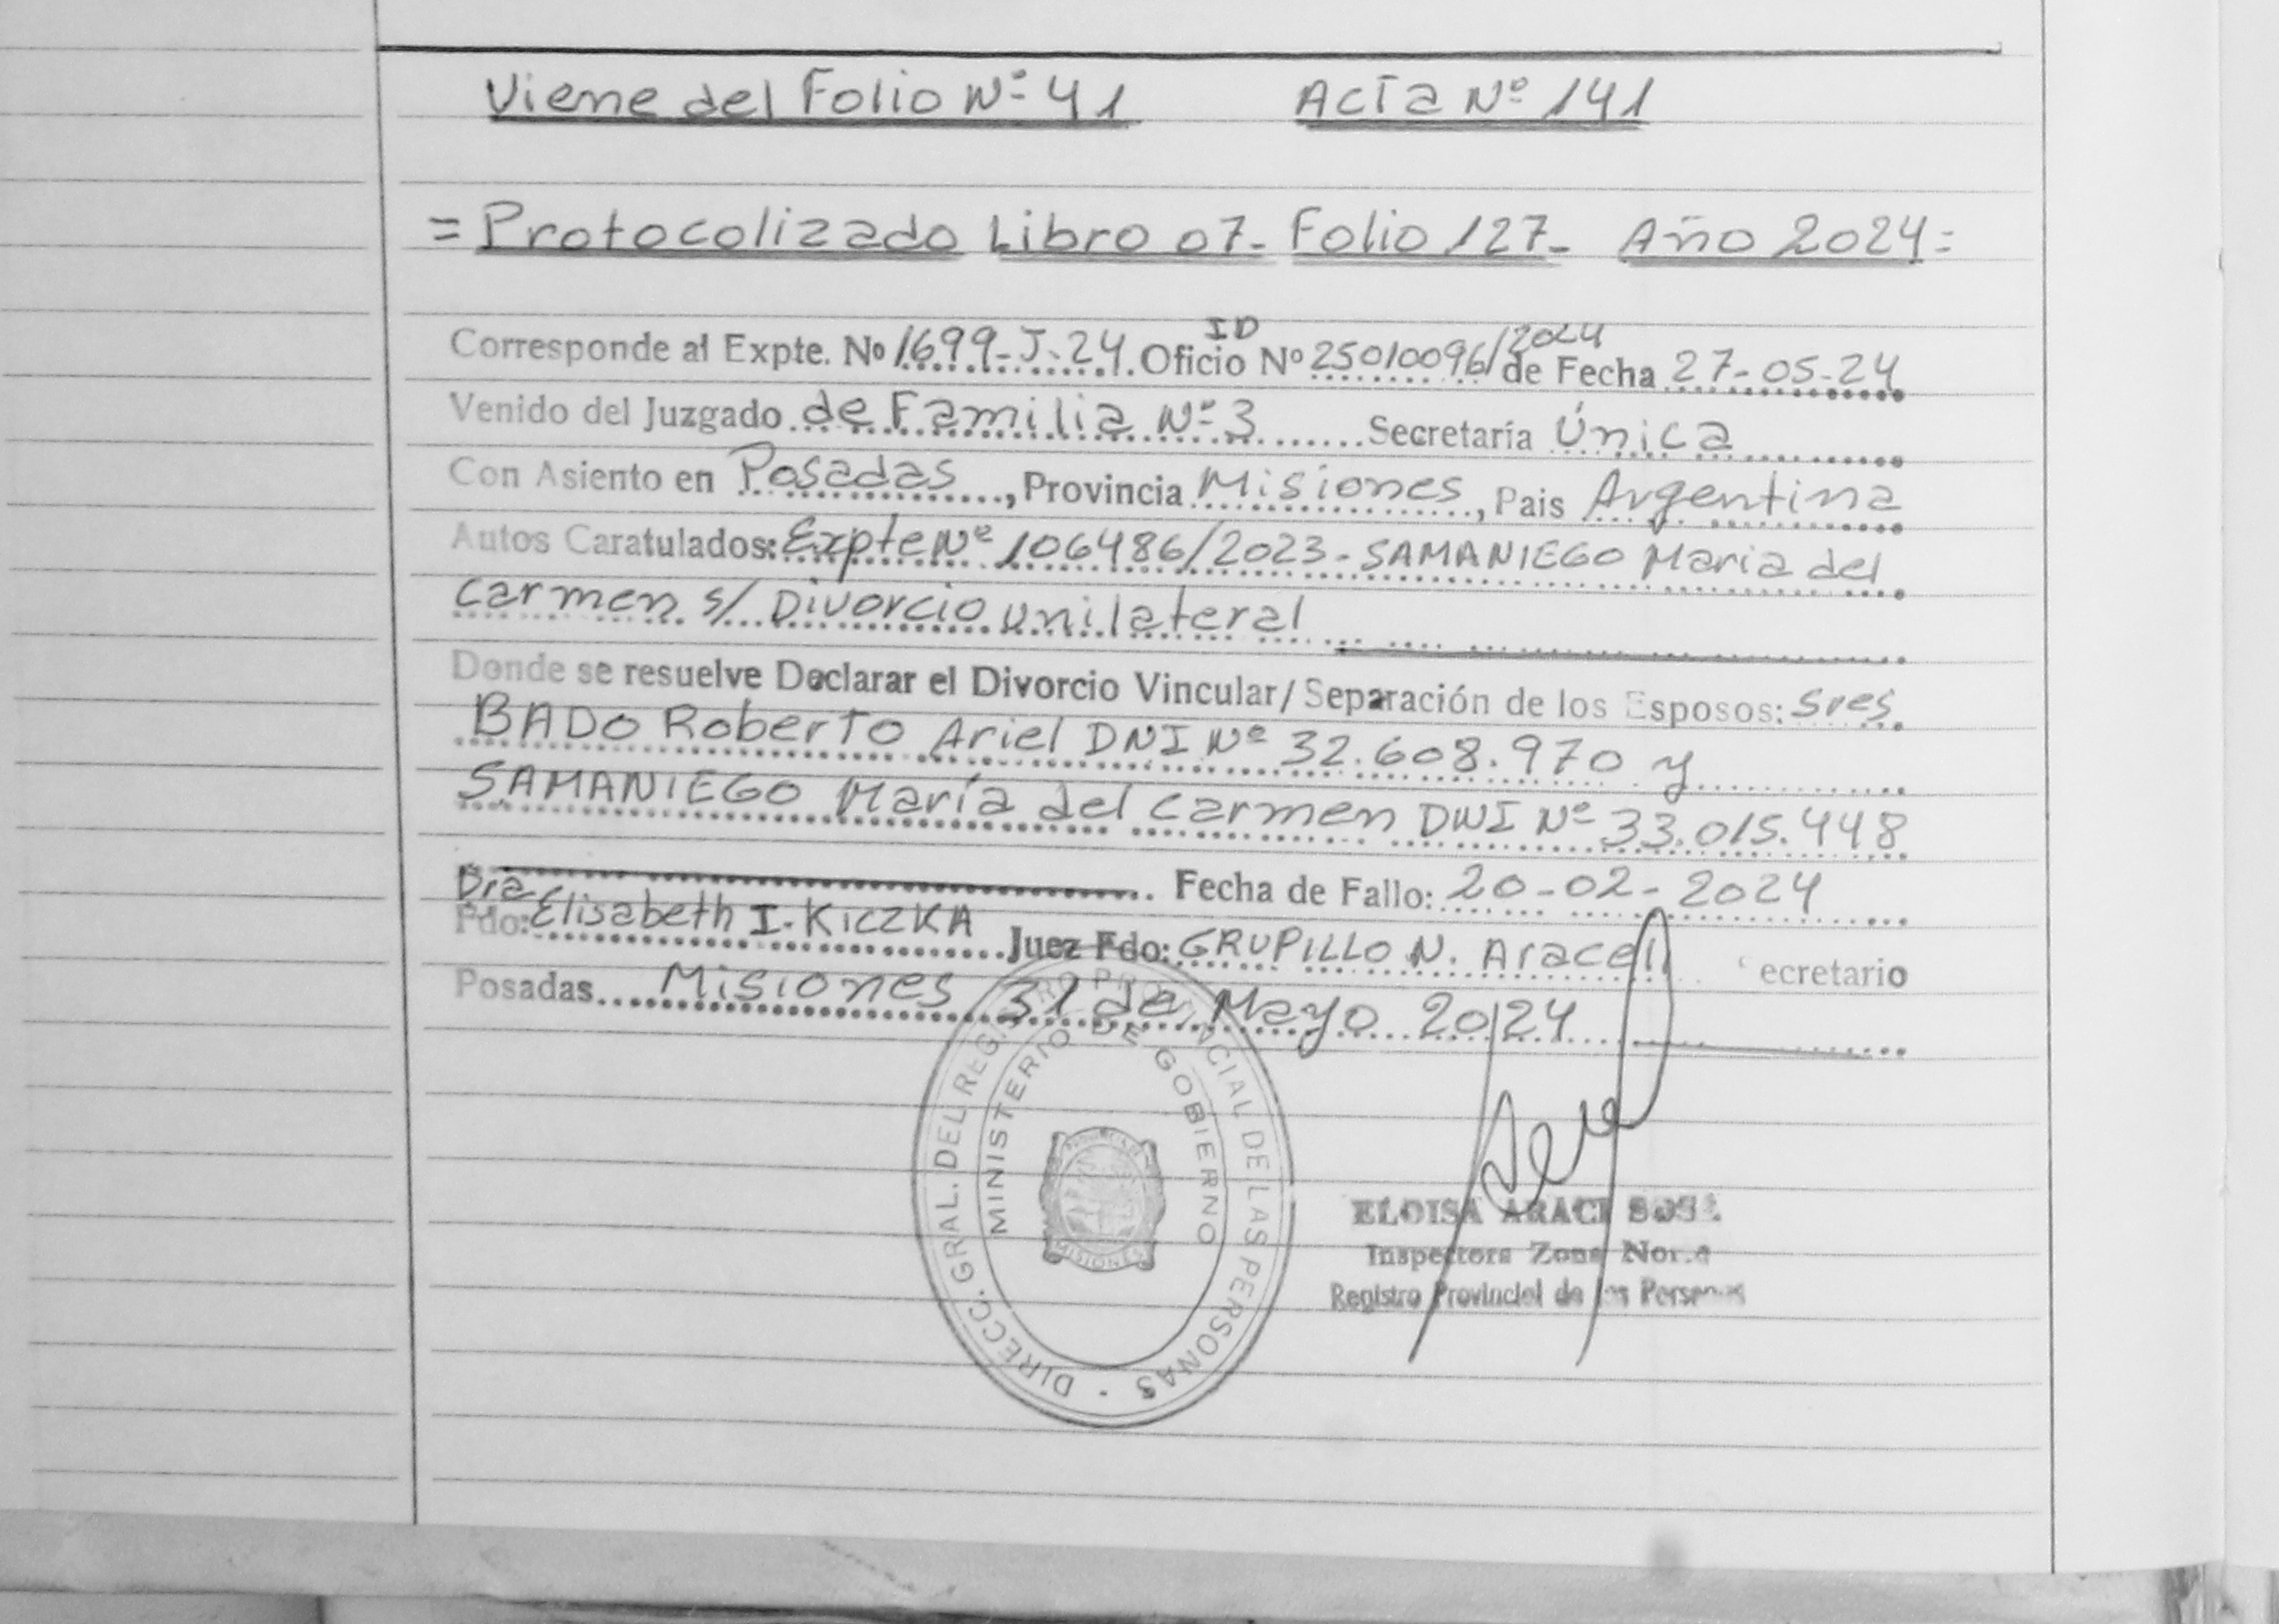 Viene del Folio Nº 41 Acta Nº 141
= Protocolizado Libro 07- Folio 127- Año 2024=
Corresponde al Expte. Nº 1699-J-24. Oficio ID Nº 25010096/2024 de Fecha 27-05-24
Venido del Juzgado de Familia Nº 3 Secretaría Única
Con Asiento en Posadas, Provincia Misiones, Pais Argentina
Autos Caratulados: Expte Nº 106486/2023- SAMANIEGO Maria del
Carmen s/ Divorcio unilateral
Donde se resuelve Declarar el Divorcio Vincular/ Separación de los Esposos: Sres.
BADO Roberto Ariel DNI Nº 32.608.970 y
SAMANIEGO María del Carmen DNI Nº 33.015.448
Fecha de Fallo: 20-02-2024
Fdo: Dra Elisabeth I. KICZKA Juez Fdo: GRUPILLO N. Araceli ecretario
Posadas Misiones 31 de Mayo 2024
DIRECC. GRAL. DEL REGISTRO PROVINCIAL DE LAS PERSONAS
MINISTERIO DE GOBIERNO
MISIONES
ELOISA ARACI
Inspectora Zona Norte
Registro Provincial de las Personas